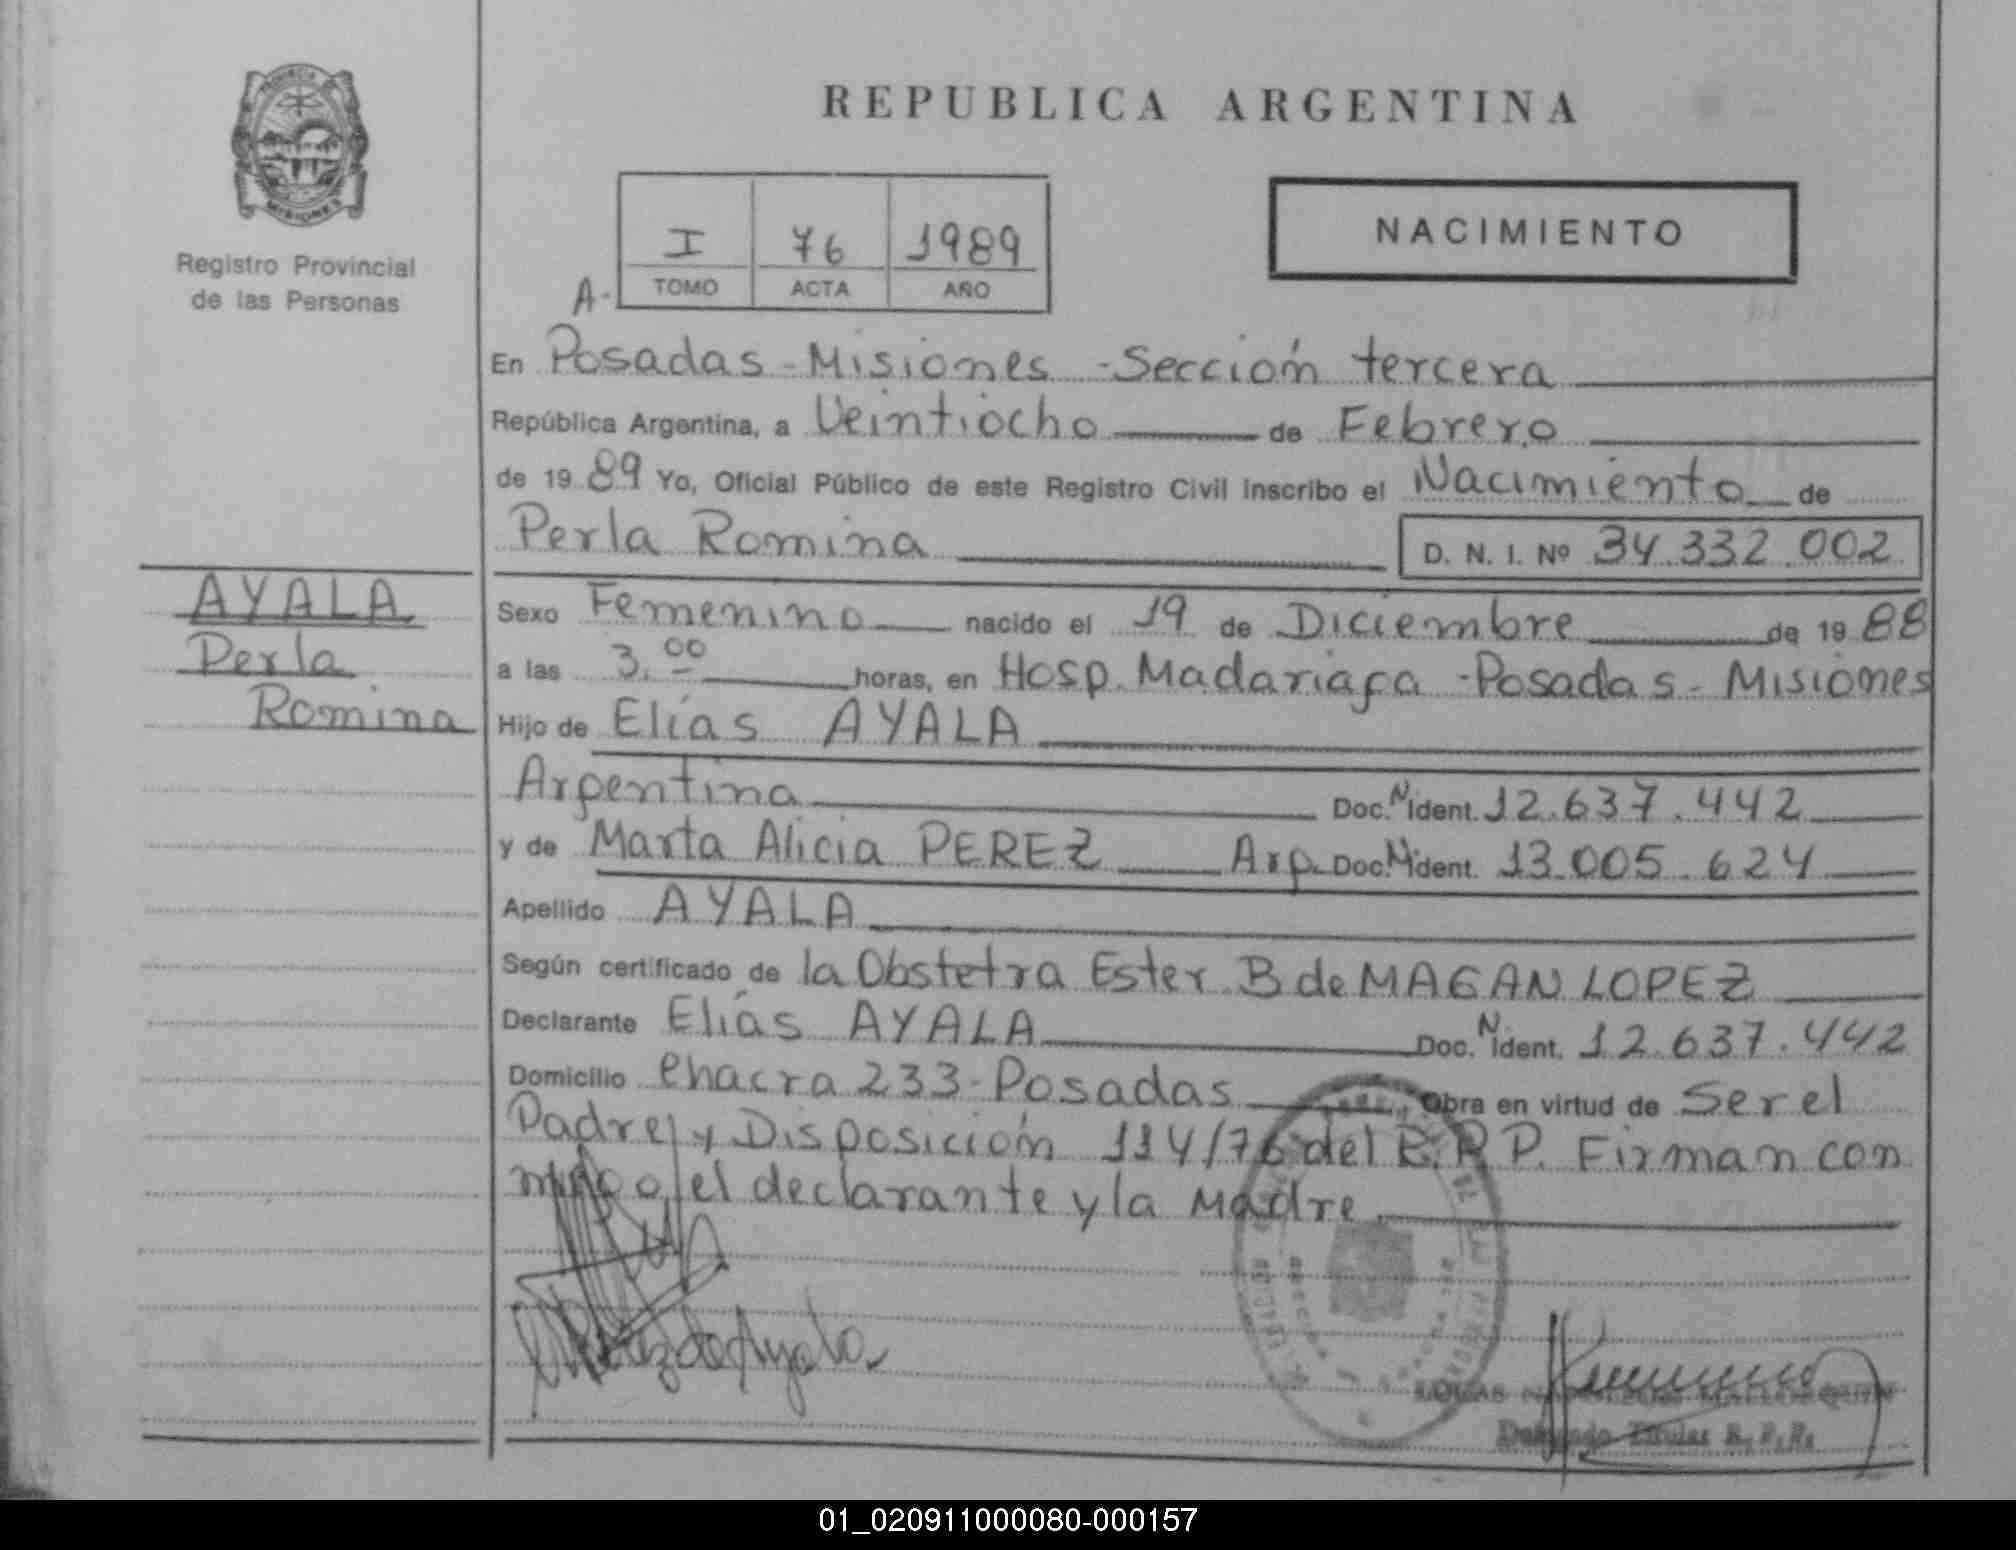 PROVINCIA
MISIONES
Registro Provincial
de las Personas
REPUBLICA ARGENTINA
NACIMIENTO
I 76 1989
A- TOMO ACTA AÑO
En Posadas - Misiones - Sección tercera
República Argentina, a Veintiocho de Febrero
de 19 89 Yo, Oficial Público de este Registro Civil inscribo el Nacimiento de
Perla Romina D. N. I. Nº 34.332.002
AYALA
Perla
Romina
Sexo Femenino nacido el 19 de Diciembre de 19 88
a las 3.00 horas, en Hosp. Madariaga - Posadas - Misiones
Hijo de Elías AYALA
Argentina Doc. N. Ident. 12.637.442
y de Marta Alicia PEREZ Arg. Doc. N. Ident. 13.005.624
Apellido AYALA
Según certificado de la Obstetra Ester B de MAGAN LOPEZ
Declarante Elías AYALA Doc. N. Ident. 12.637.442
Domicilio Chacra 233 - Posadas Obra en virtud de Ser el
Padre y Disposición 114/76 del R.P.P. Firman con
migo el declarante y la Madre.
Perez de Ayala
Delegado Titular R.P.P.
01_020911000080-000157